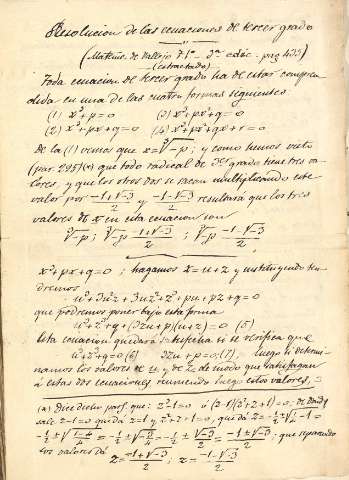 Resolucion de las ecuaciones de tercer grado
(Matems. de Vallejo T. 1º - 3ª edic. - pag 433)
(extractado)
Toda ecuacion de tercer grado ha de estar compren
dida en una de las cuatro formas siguientes
(1) x³+p=0 (3) x³+px+q=0
(2) x³+px²+q=0 (4) x³+px²+qx+r=0
De la (1) vemos que x=∛-p; y como hemos visto
(par. 295)(a) que todo radical de 3er grado tiene tres va-
lores, y que los otros dos se sacan multiplicando este
valor por (-1+√-3)/2 y (-1-√-3)/2 resultará que los tres
valores de x en esta ecuacion son
∛-p; ∛-p (-1+√-3)/2; ∛-p (-1-√-3)/2
x³+px+q=0; hagamos x=u+z y sustituyendo ten-
dremos
u³+3u²z+3uz²+z³+pu+pz+q=0
que podremos poner bajo esta forma
u³+z³+q+(3zu+p)(u+z)=0 (5)
Esta ecuacion quedará satisfecha si se verifica que
u³+z³+q=0 (6) 3zu+p=0 (7), luego si determi-
namos los valores de u y de z de modo que satisfagan
á estas dos ecuaciones, sumando luego estos valores,
(a) Dice dicho parf. que: z³-1=0 ó (z-1)(z²+z+1)=0; de donde
sale z-1=0 que dá z=1 y z²+z+1=0, que dá z=-½±√(¼-1)=
-½±√((1-4)/4)=-½±√(-3/4)=-½±√-3/2=(-1±√-3)/2; que separando
los valores dá
z=(-1+√-3)/2; z=(-1-√-3)/2